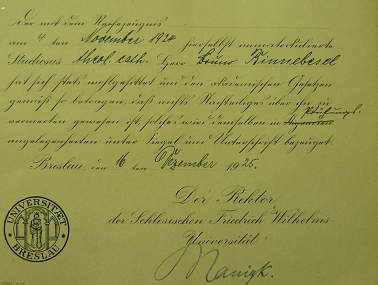 Der mit dem Reifezeugnis
am 4 ten November 1924 hierselbst immatrikulierte
Studiosus theol. cath. Herr Bruno Binnebesel
hat sich stets wohlgesittet und den akademischen Gesetzen
gemäß so betragen, daß nichts Nachteiliges über ihn zu
vermerken gewesen ist, solches wird demselben in Prüfungs-
angelegenheiten unter Siegel und Unterschrift bezeugt.
Breslau, den 16 ten Dezember 1925.
Der Rektor
der Schlesischen Friedrich Wilhelms
Universität
Manigk.
UNIVERSITÄT
BRESLAU